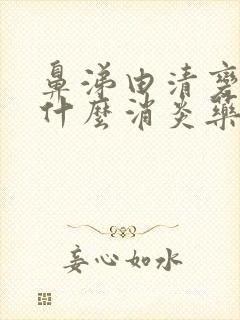 鼻涕由清变
什麼消炎藥
妄心如水